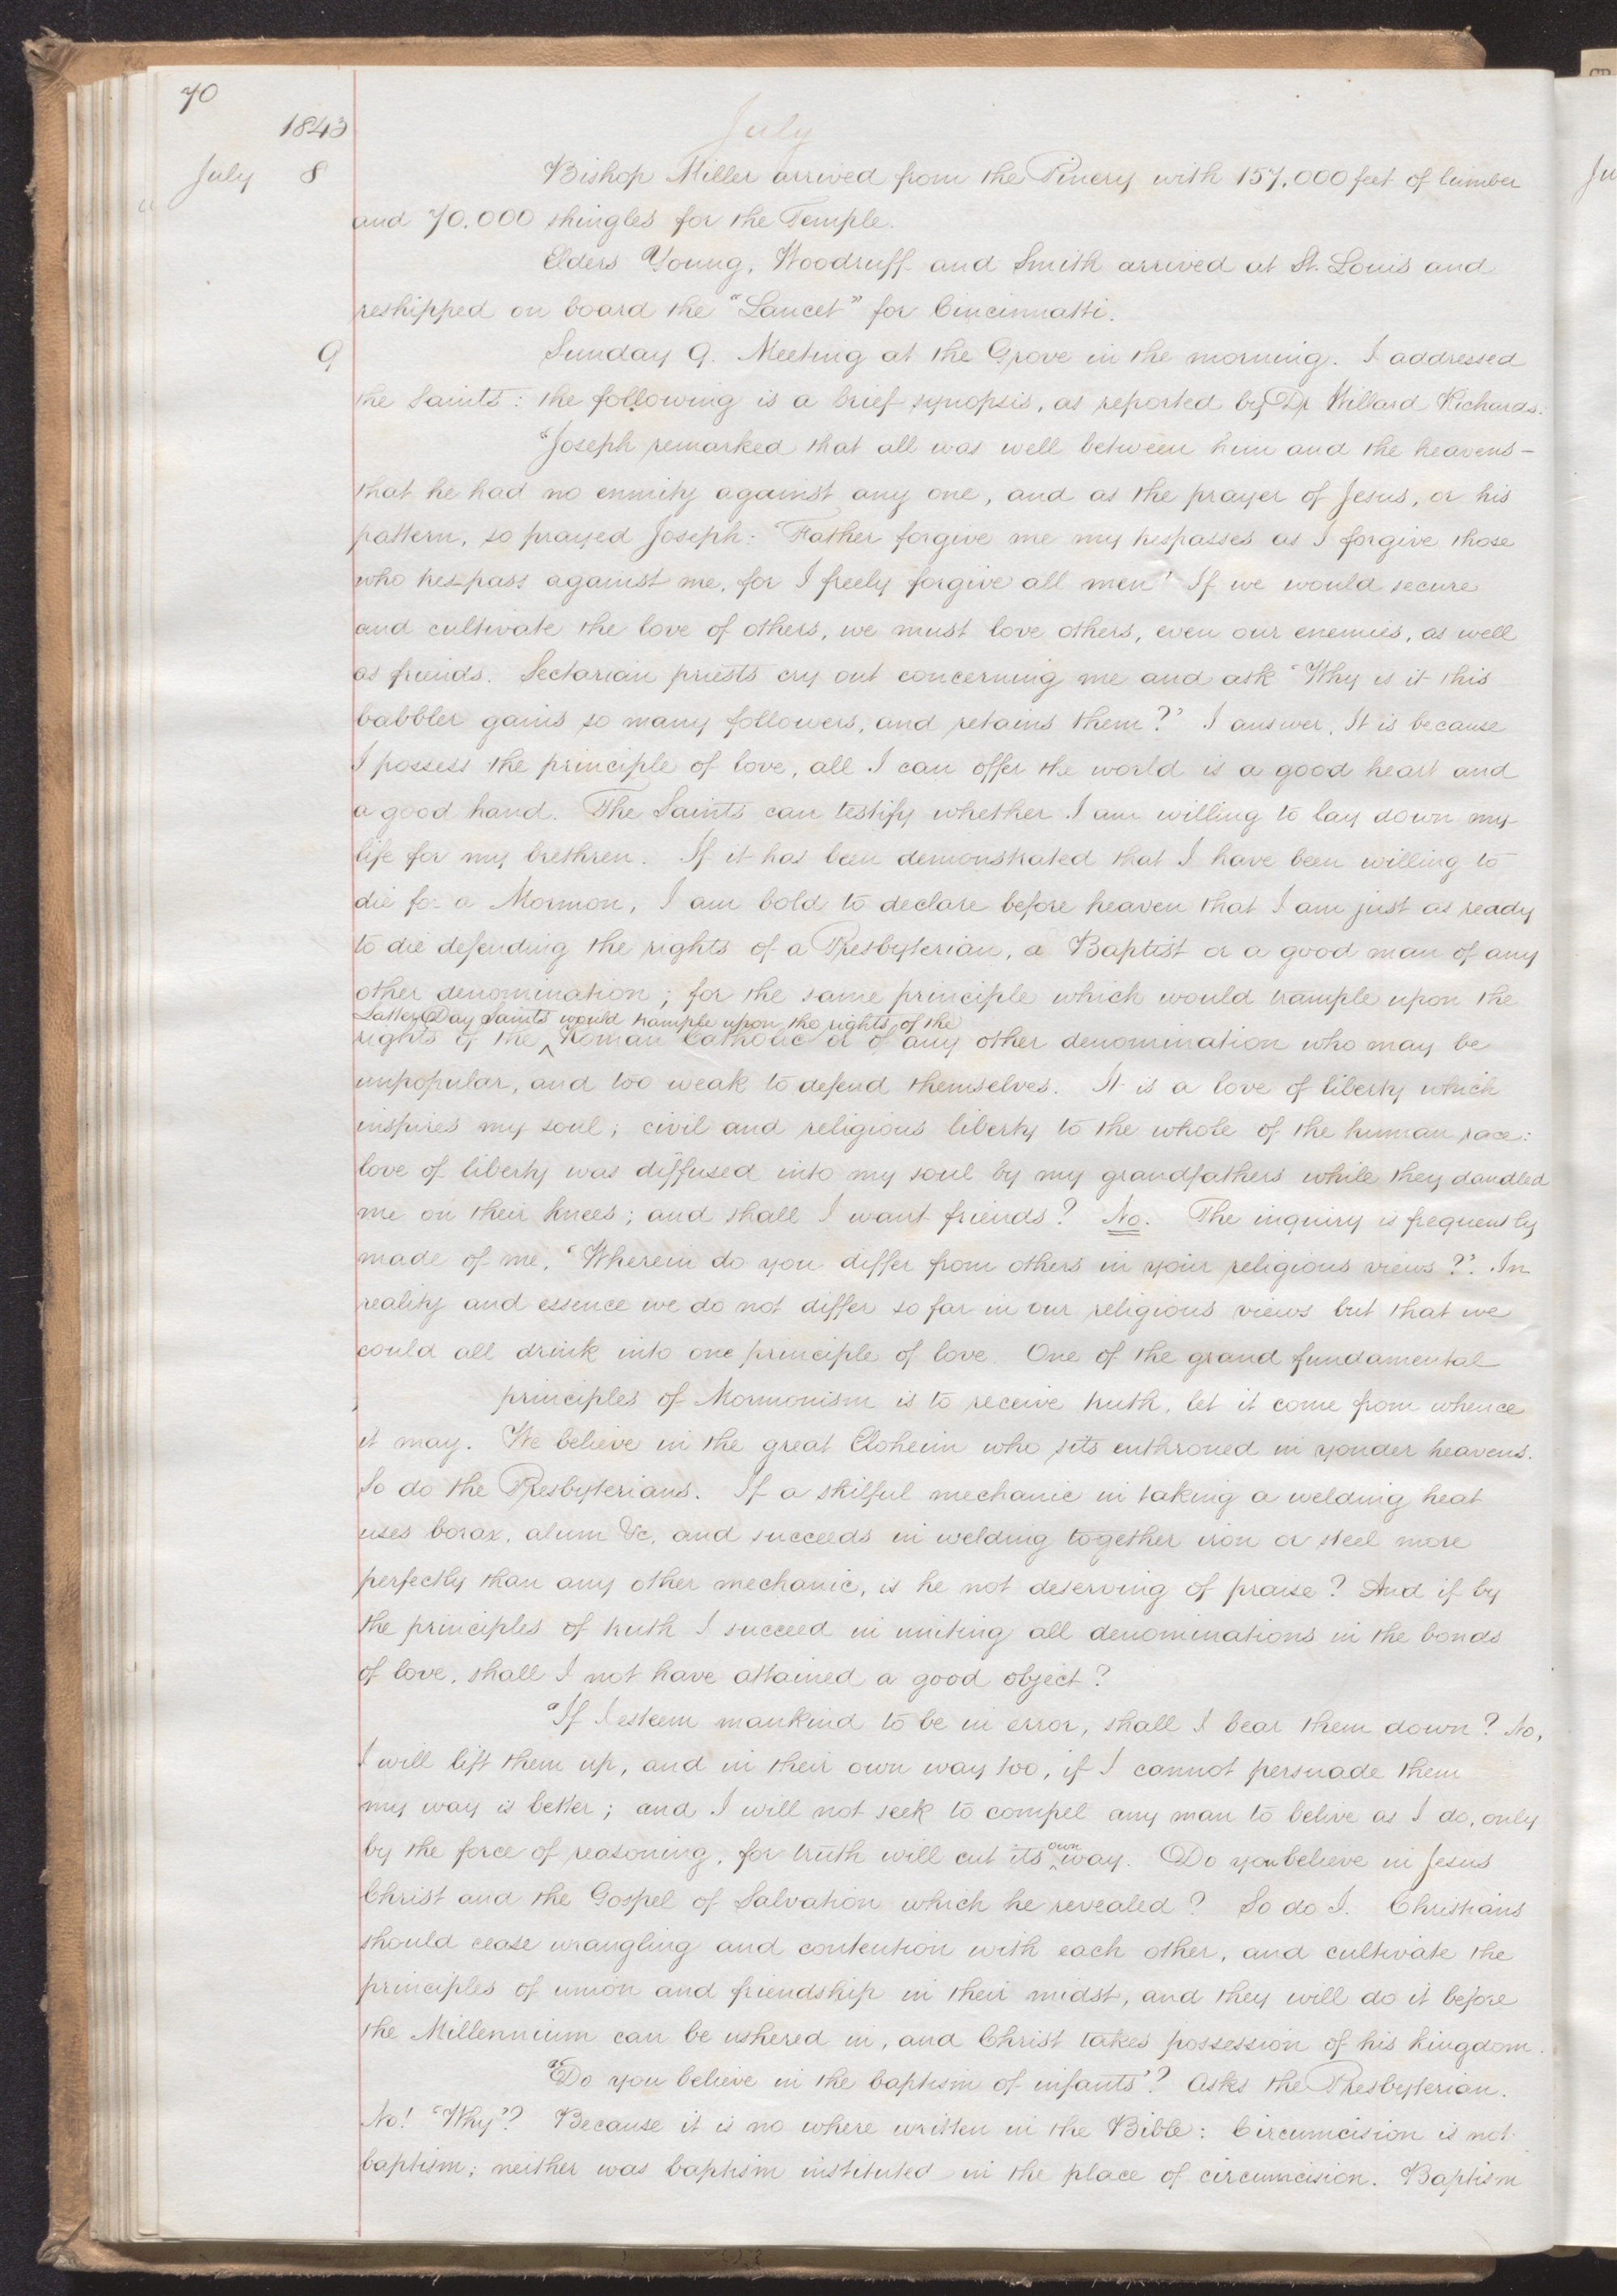 70
1843
July
July 8 Bishop Miller arrived from the Pinery with 157,000 feet of lumber
and 70.000 shingles for the Temple.
Elders Young, Woodruff and Smith arrived at St. Louis and
reshipped on board the "Lancet" for Cincinnatti.
9 Sunday 9. Meeting at the Grove in the morning. I addressed
the Saints: the following is a brief synopsis, as reported by Dr Willard Richards.
"Joseph remarked that all was well between him and the heavens –
that he had no enmity against any one, and as the prayer of Jesus, or his
pattern, so prayed Joseph: 'Father forgive me my trespasses as I forgive those
who trespass against me, for I freely forgive all men' If we would secure
and cultivate the love of others, we must love others, even our enemies, as well
as friends. Sectarian priests cry out concerning me and ask 'Why is it this
babbler gains so many followers, and retains them?' I answer, It is because
I possess the principle of love, all I can offer the world is a good heart and
a good hand. The Saints can testify whether I am willing to lay down my
life for my brethren. If it has been demonstrated that I have been willing to
die for a Mormon, I am bold to declare before heaven that I am just as ready
to die defending the rights of a Presbyterian, a Baptist or a good man of any
other denomination; for the same principle which would trample upon the
Latter Day Saints would trample upon the rights of the
rights of the ^ Roman Catholic or of any other denomination who may be
unpopular, and too weak to defend themselves. It is a love of liberty which
inspires my soul; civil and religious liberty to the whole of the human race:
love of liberty was diffused into my soul by my grandfathers while they dandled
me on their knees; and shall I want friends? No. The inquiry is frequently
made of me, 'Wherein do you differ from others in your religious views?'. In
reality and essence we do not differ so far in our religious views but that we
could all drink into one principle of love. One of the grand fundamental
principles of Mormonism is to receive truth, let it come from whence
it may. We believe in the great Eloheim who sits enthroned in yonder heavens.
So do the Presbyterians. If a skilful mechanic in taking a welding heat
uses borax, alum &c, and succeeds in welding together iron or steel more
perfectly than any other mechanic, is he not deserving of praise? And if by
the principles of truth I succeed in uniting all denominations in the bonds
of love, shall I not have attained a good object?
"If I esteem mankind to be in error, shall I bear them down? No,
I will lift them up, and in their own way too, if I cannot persuade them
my way is better; and I will not seek to compel any man to belive as I do, only
by the force of reasoning, for truth will cut its ^own way. Do you believe in Jesus
Christ and the Gospel of Salvation which he revealed? So do I. Christians
should cease wrangling and contention with each other, and cultivate the
principles of union and friendship in their midst, and they will do it before
the Millennium can be ushered in, and Christ takes possession of his kingdom.
"'Do you believe in the baptism of infants'? Asks the Presbyterian.
No! 'Why'? Because it is no where written in the Bible: Circumcision is not
baptism; neither was baptism instituted in the place of circumcision. Baptism